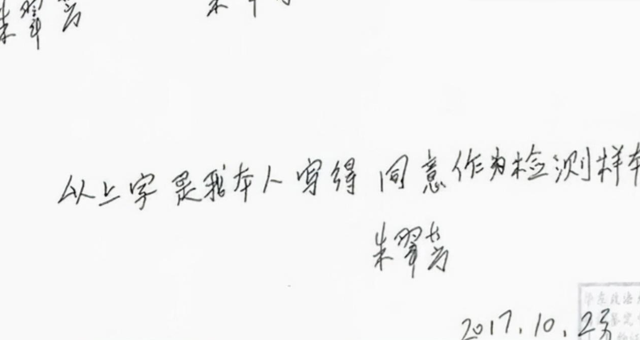 以上字是我本人写得 同意作为检测样本
朱翠芳
2017.10.23
华东政法